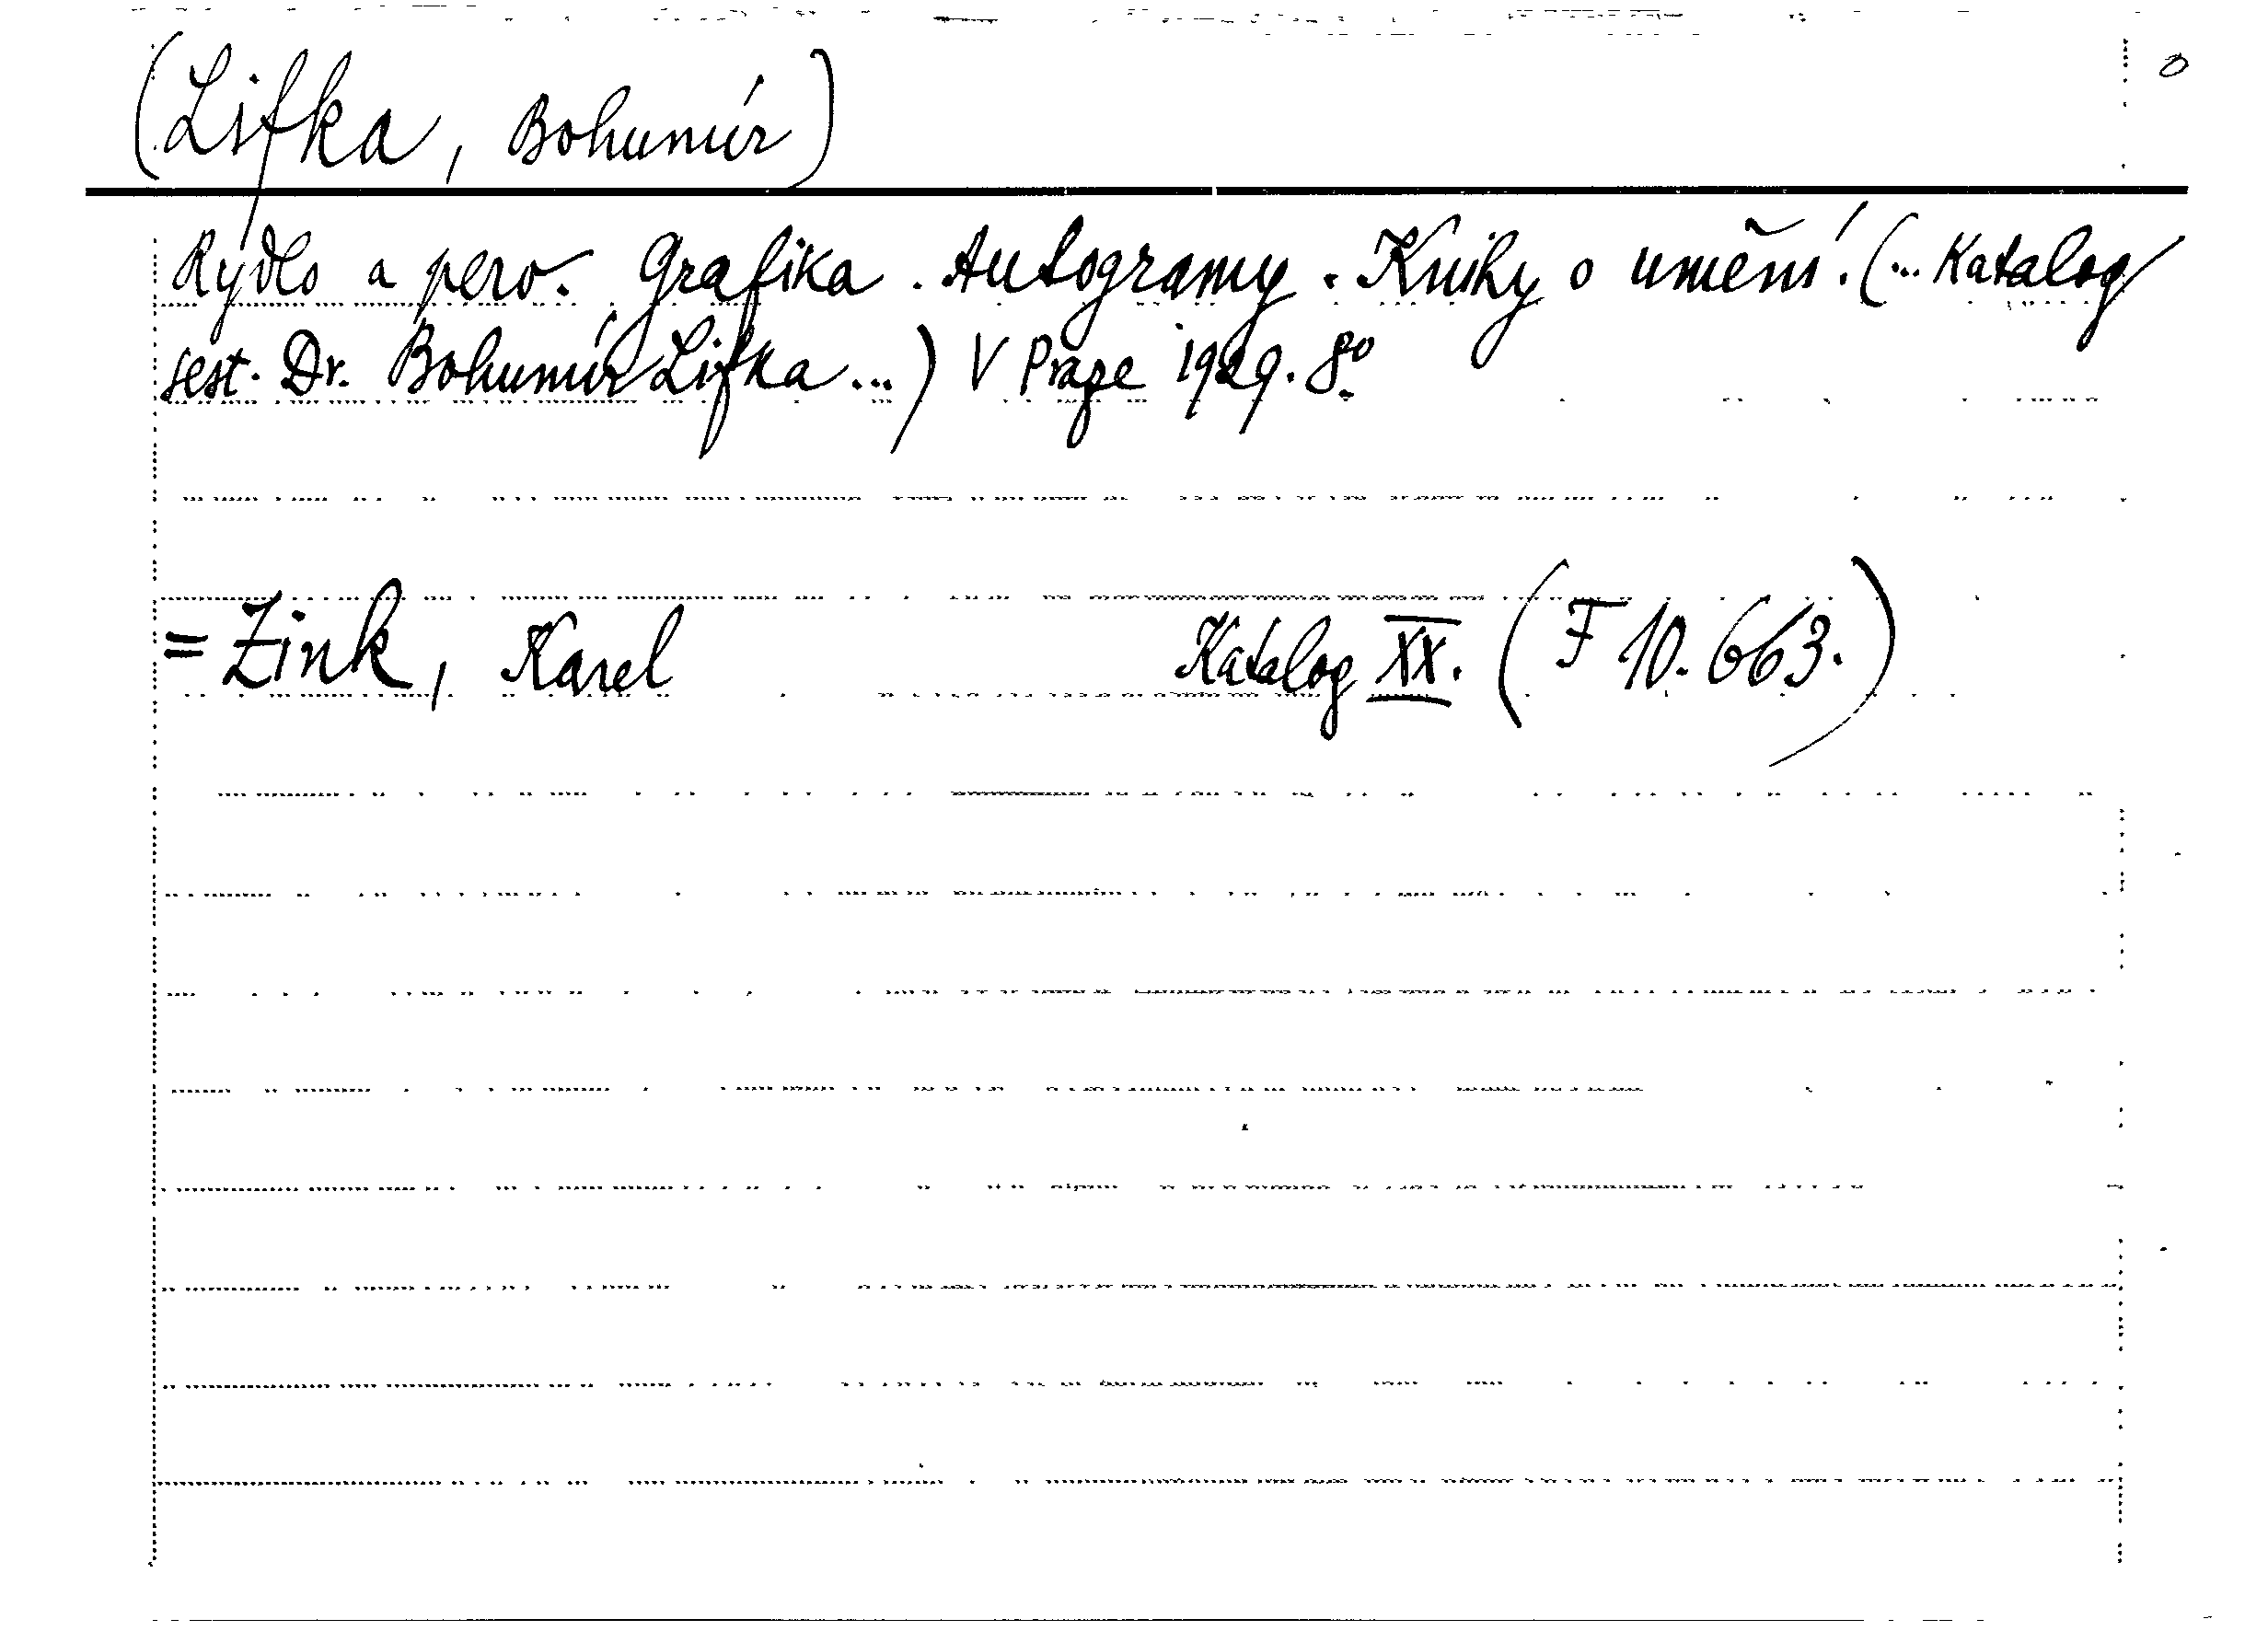 (Lifka, Bohumír)
Rydlo a pero. Grafika. Autogramy. Knihy o umění. (... Katalog
sest. Dr. Bohumír Lifka...) V Praze 1929. 8º
= Zink, Karel Katalog XX. (F 10.663.)